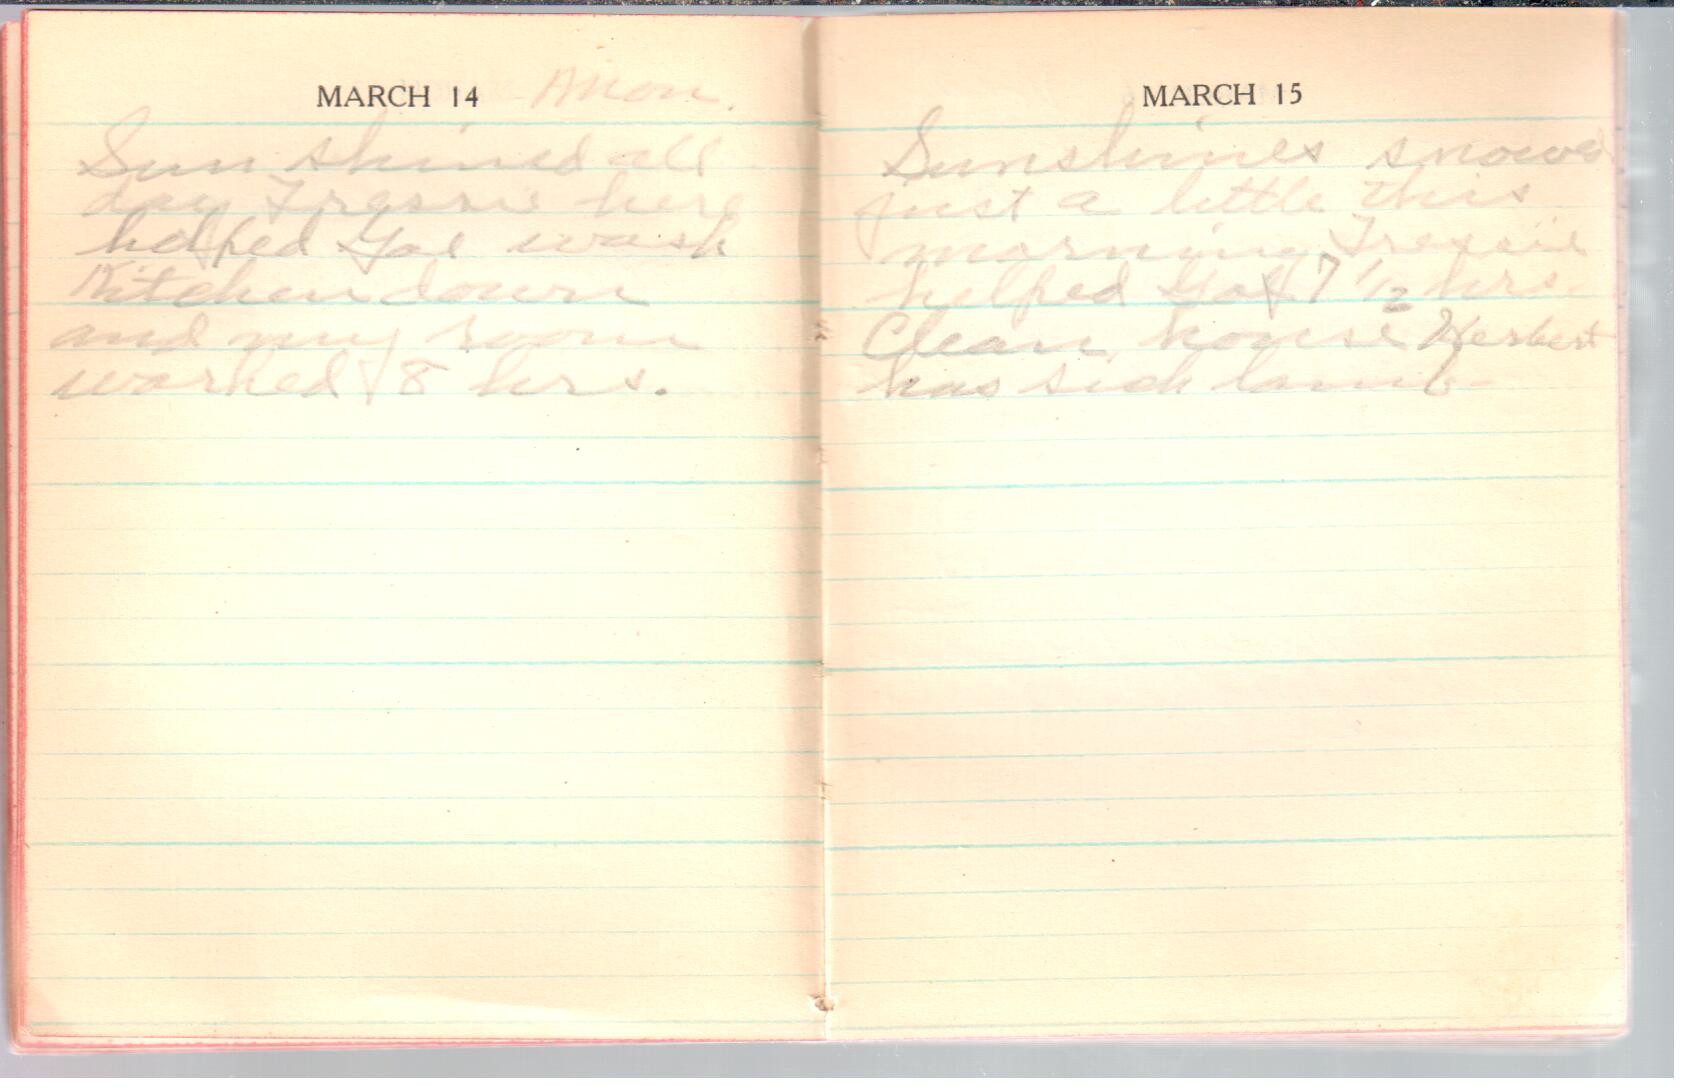 MARCH 14 Mon.
Sun shined all
day Tressie here
helped Gae wash
Kitchen down
and my room
worked 8 hrs.
MARCH 15
Sunshines snowed
just a little this
morning Tressie
helped 7 1/2 hrs.
Clean house Herbert
has sick lamb-